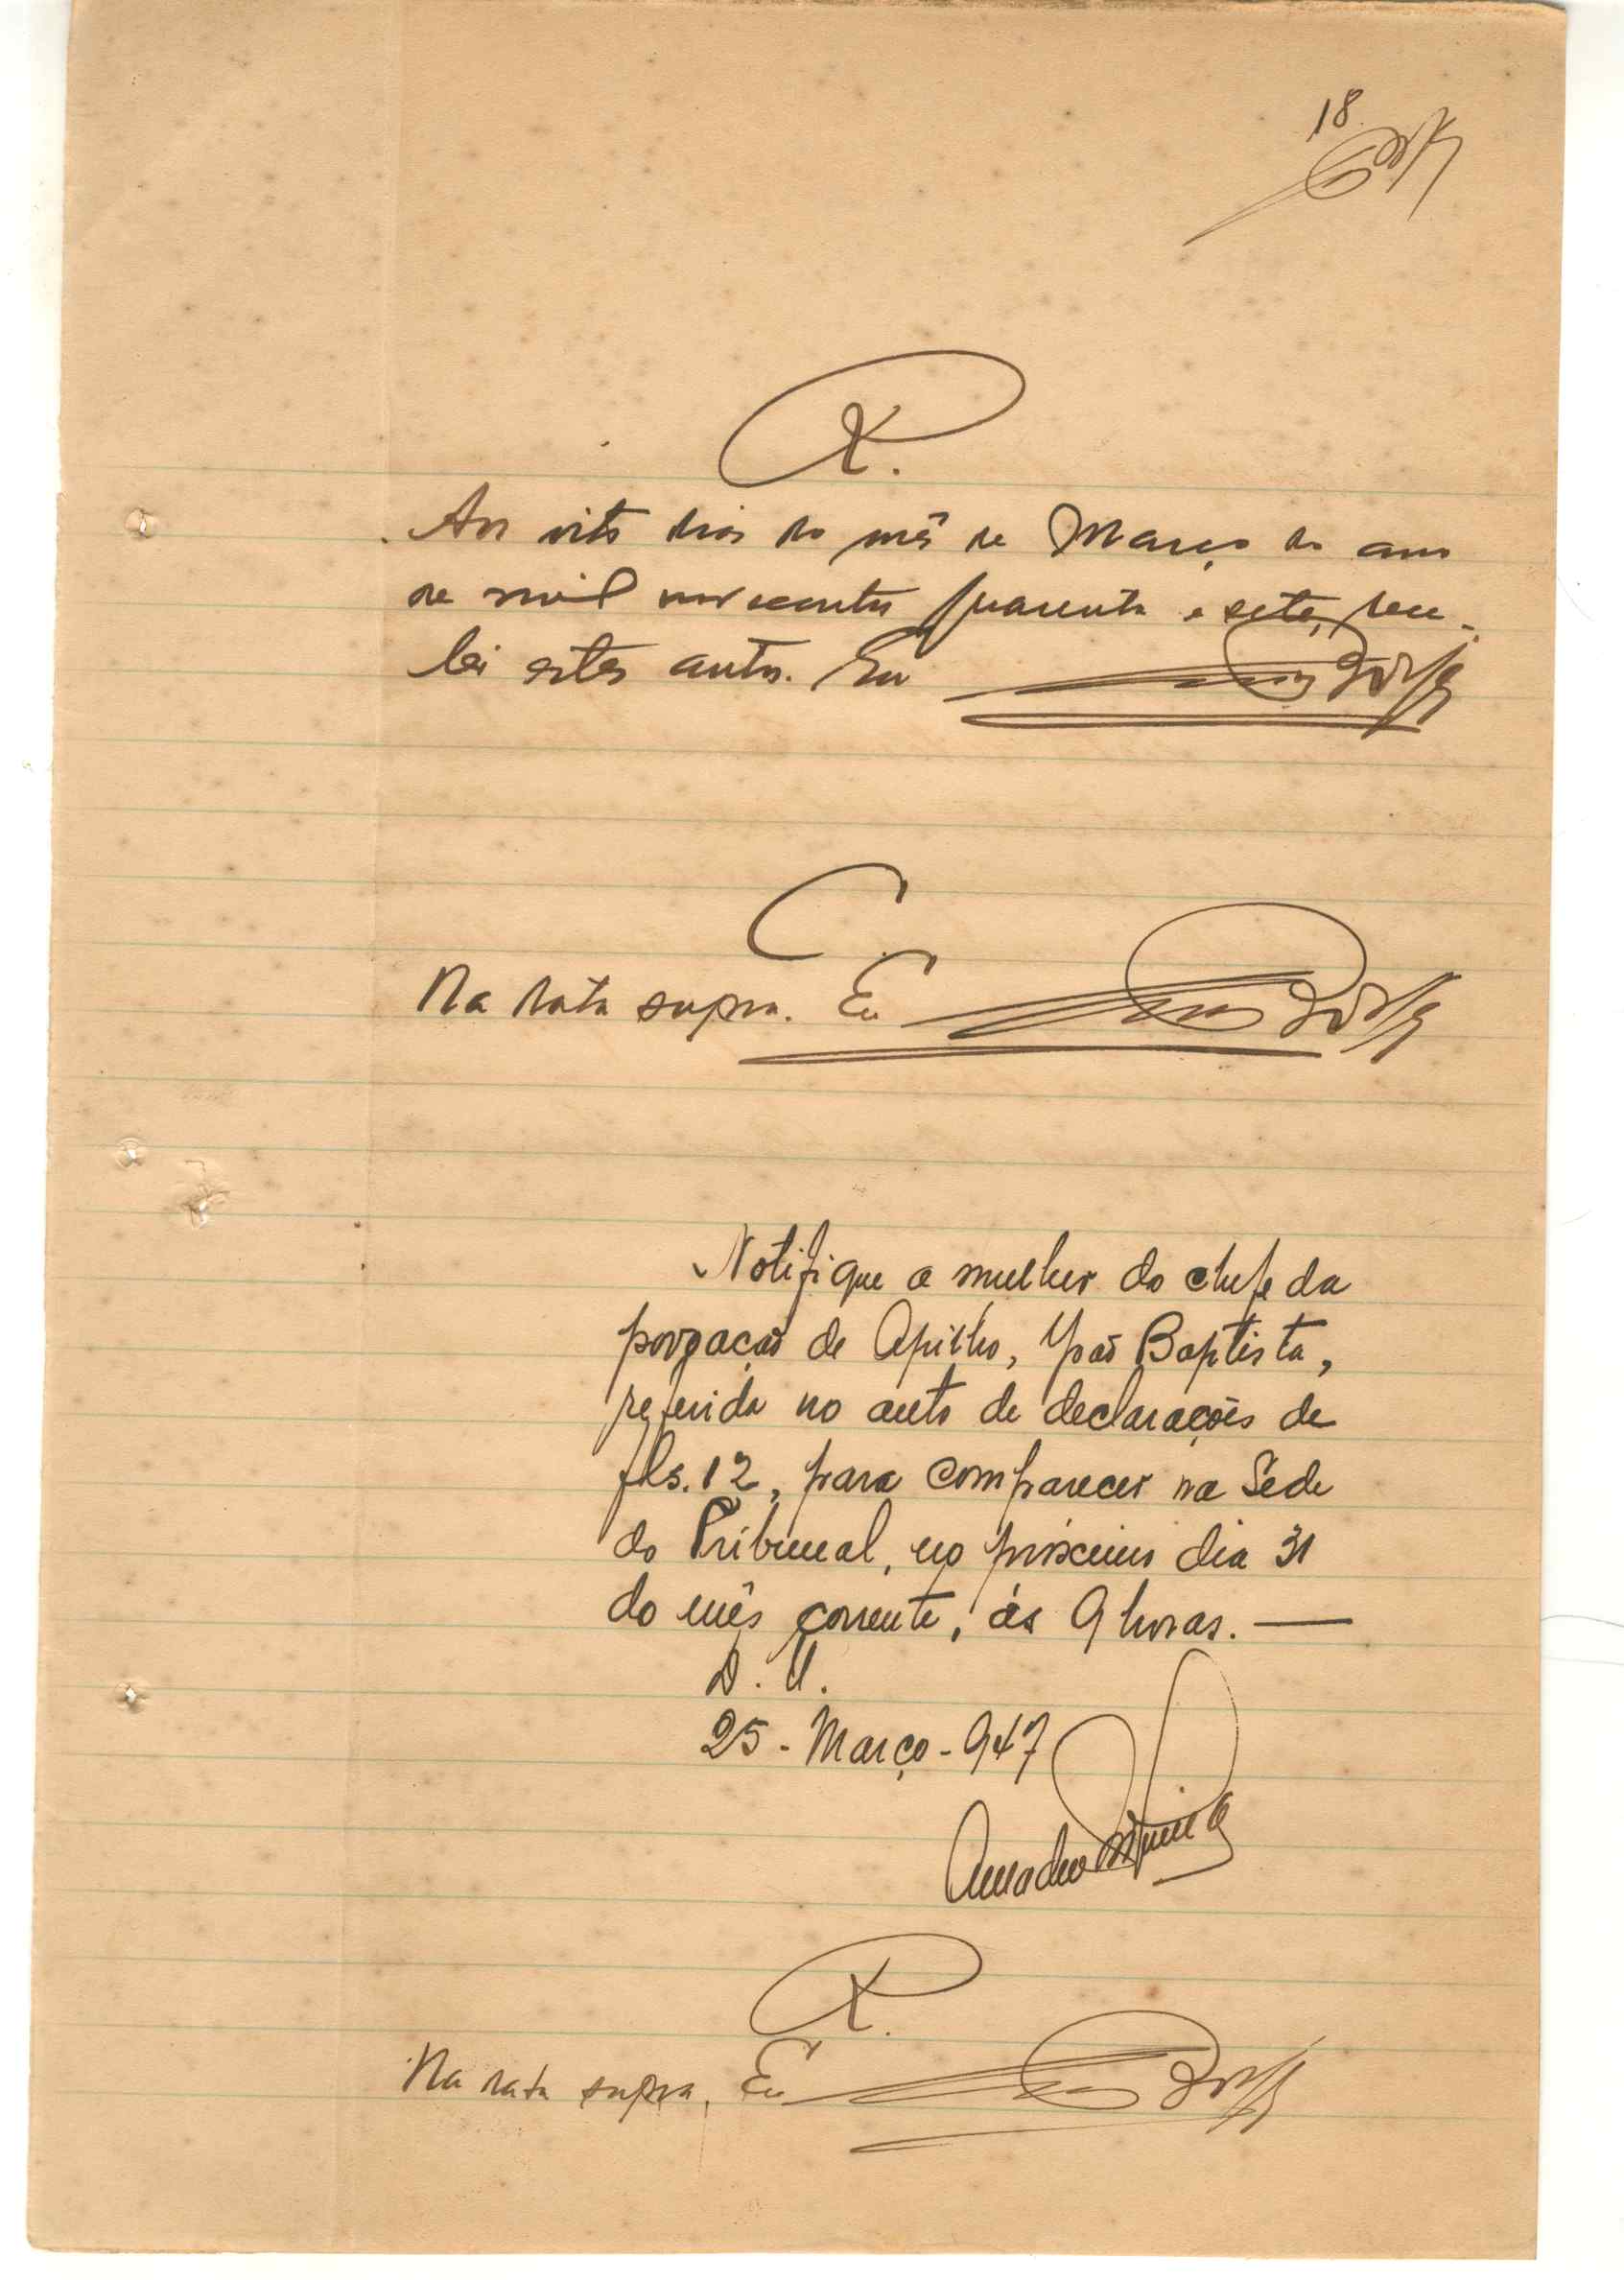 18
R.
Aos vito dias do mês de Março do ano
de mil novecentos quarenta e sete, rece-
bi estes autos. Eu
C.
Na data supra. Eu
Notifique a mulher do chefe da
povoação de João Baptista,
referida no auto de declarações de
fls. 12, para comparecer na Sede
do Tribunal, no próximo dia 31
do mês corrente, ás 9 horas. —
D. U.
25 - Março - 947
Amadeu
R.
Na data supra. Eu